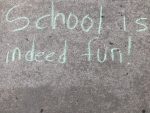 School is
indeed fun!